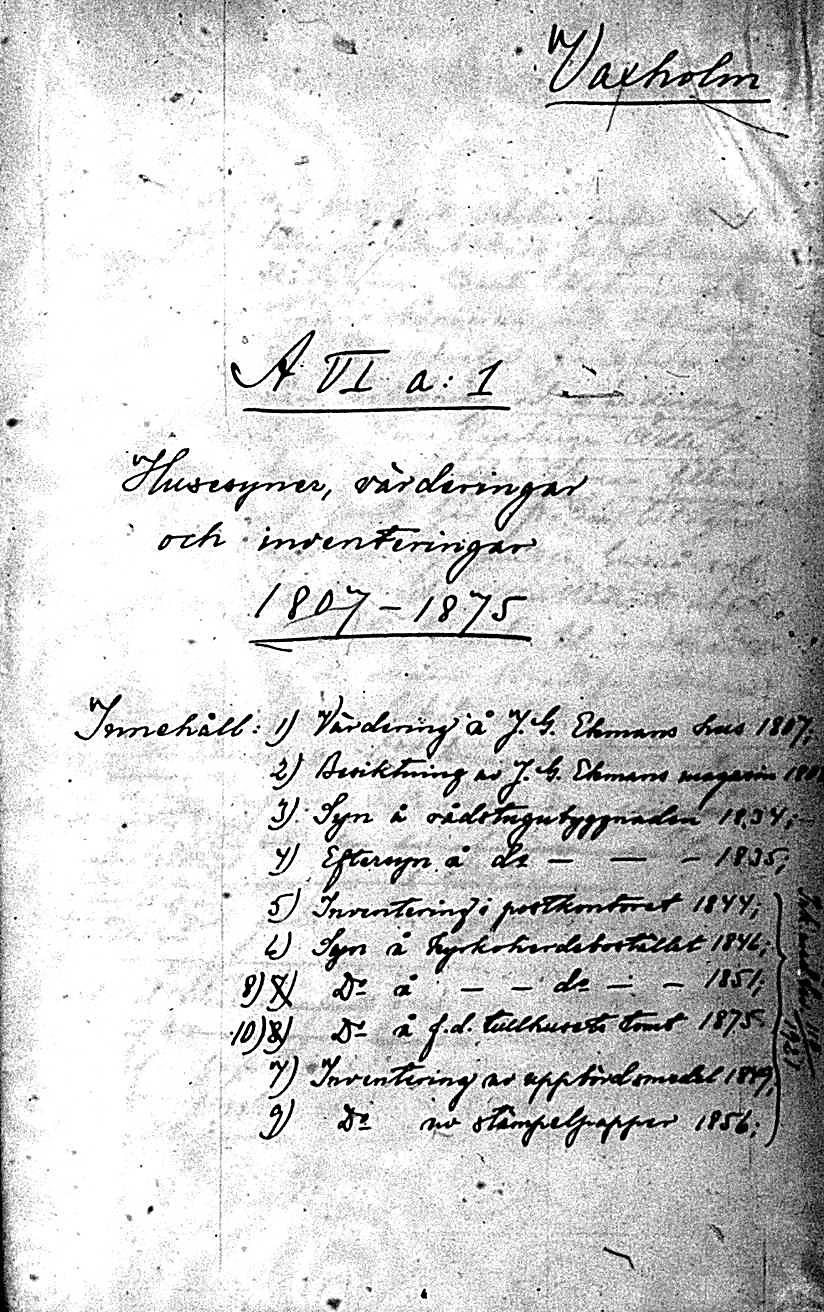 Vaxholm
A VI a: 1
Husesyner, värderingar
och inventeringar
1807–1875
Innehåll: 1) Värdering å J. G. Ekmans hus 1807;
2) Besiktning av J. G. Ekmans magasin
3) Syn å rådstugubyggnaden 1834;
4) Eftersyn å do — — — 1835;
5) Inventering i postkontoret 1844;
6) Syn å kyrkoherdebostället 1846;
8) 7) Do å — — do — — 1851;
10) 8) Do å f.d. tullhusets tomt 1875
7) Inventering av uppbördsmedel 1849;
9) Do av stämpelpapper 1856;